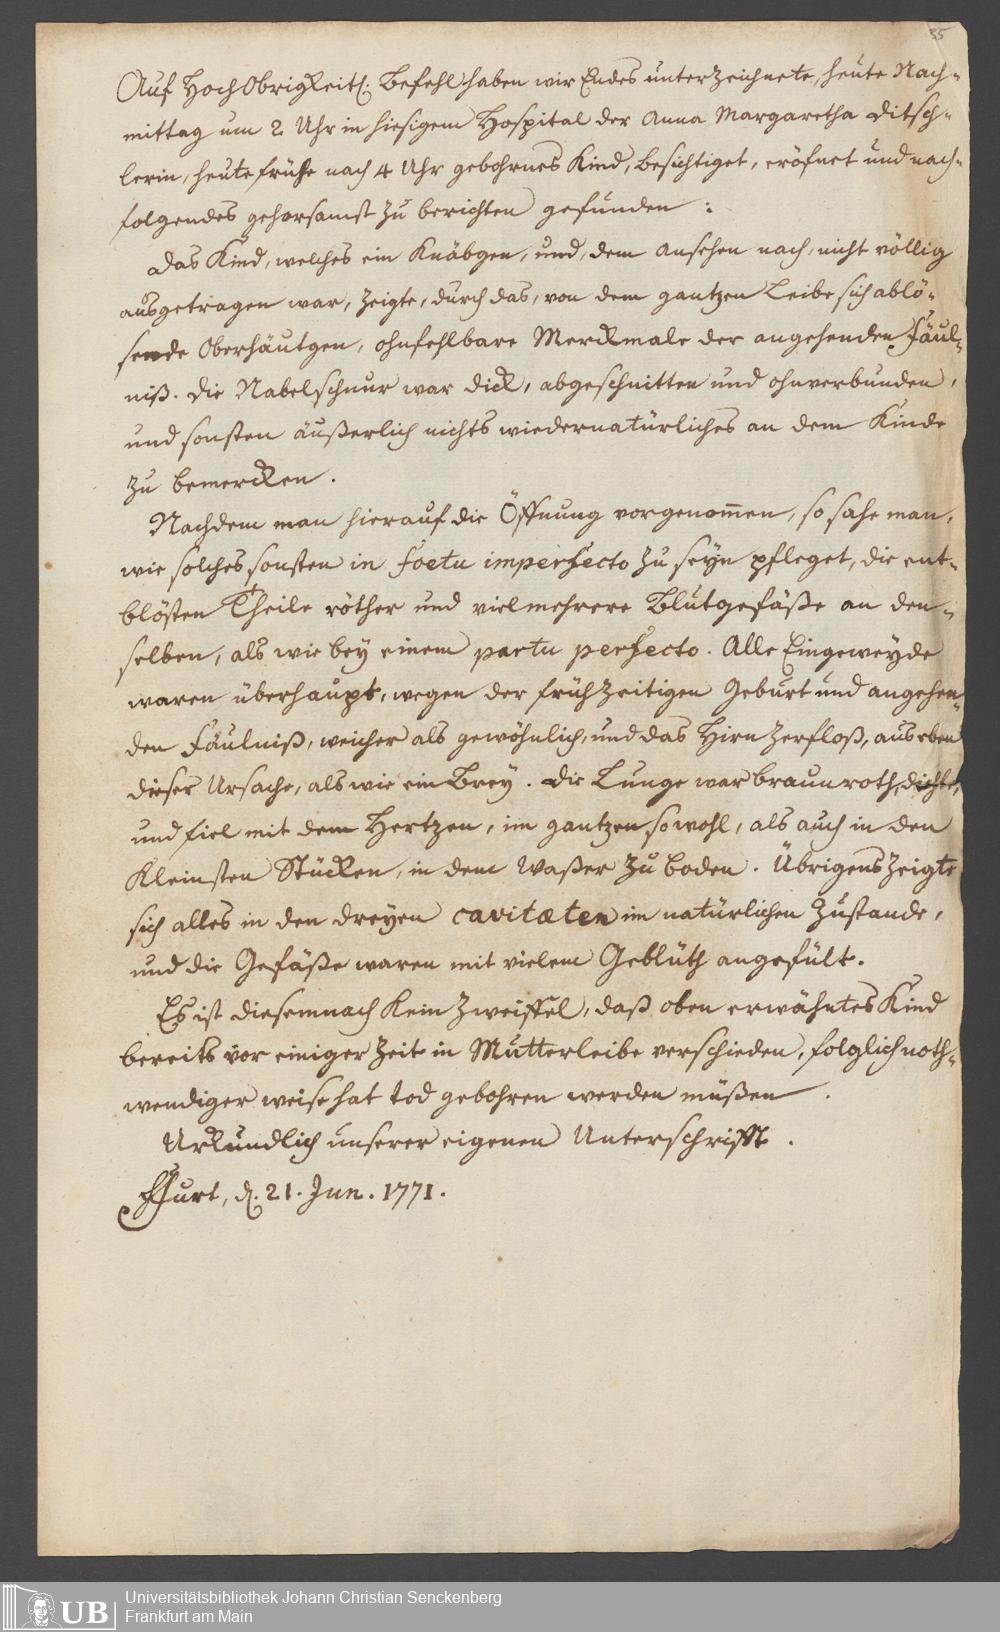 35
Auf HochObrigkeitl. Befehl haben wir Endes unterzeichnete, heute Nach-
mittag um 2 Uhr in hiesigem Hospital der Anna Margaretha Ditsch-
lerin, heute frühe nach 4 Uhr gebohrnes Kind, besichtiget, eröfnet und nach-
folgendes gehorsamst zu berichten gefunden:
Das Kind, welches ein Knäbgen, und, dem Ansehen nach, nicht völlig
ausgetragen war, zeigte, durch das, von dem gantzen Leibe sich ablö-
sende Oberhäutgen, ohnfehlbare Merckmale der angehenden Fäul-
niß. Die Nabelschnur war dick, abgeschnitten und ohnverbunden,
und sonsten äußerlich nichts wiedernatürliches an dem Kinde
zu bemercken.
Nachdem man hierauf die Öffnung vorgenom̄en, so sahe man,
wie solches sonsten in foetu imperfecto zu seyn pfleget, die ent-
blösten Theile röther und viel mehrere Blutgefäße an den-
selben, als wie bey einem partu perfecto. Alle Eingeweyde
waren überhaupt, wegen der frühzeitigen Geburt und angehen-
den Fäulniß, weicher als gewöhnlich, und das Hirn zerfloß, aus eben
dieser Ursache, als wie ein Brey. Die Lunge war braunroth, dichte,
und fiel mit dem Hertzen, im gantzen sowohl, als auch in den
kleinsten Stücken, in dem Waßer zu boden. Übrigens zeigte
sich alles in den dreyen cavitæten im natürlichen Zustande,
und die Gefäße waren mit vielem Geblüth angefült.
Es ist diesemnach kein Zweiffel, daß oben erwähntes Kind
bereits vor einiger Zeit in Mutterleibe verschieden, folglich noth-
wendiger weise hat tod gebohren werden müßen.
Urkundlich unserer eigenen Unterschrifft.
Ffurt, d. 21. Jun. 1771.
UB
Universitätsbibliothek Johann Christian Senckenberg
Frankfurt am Main